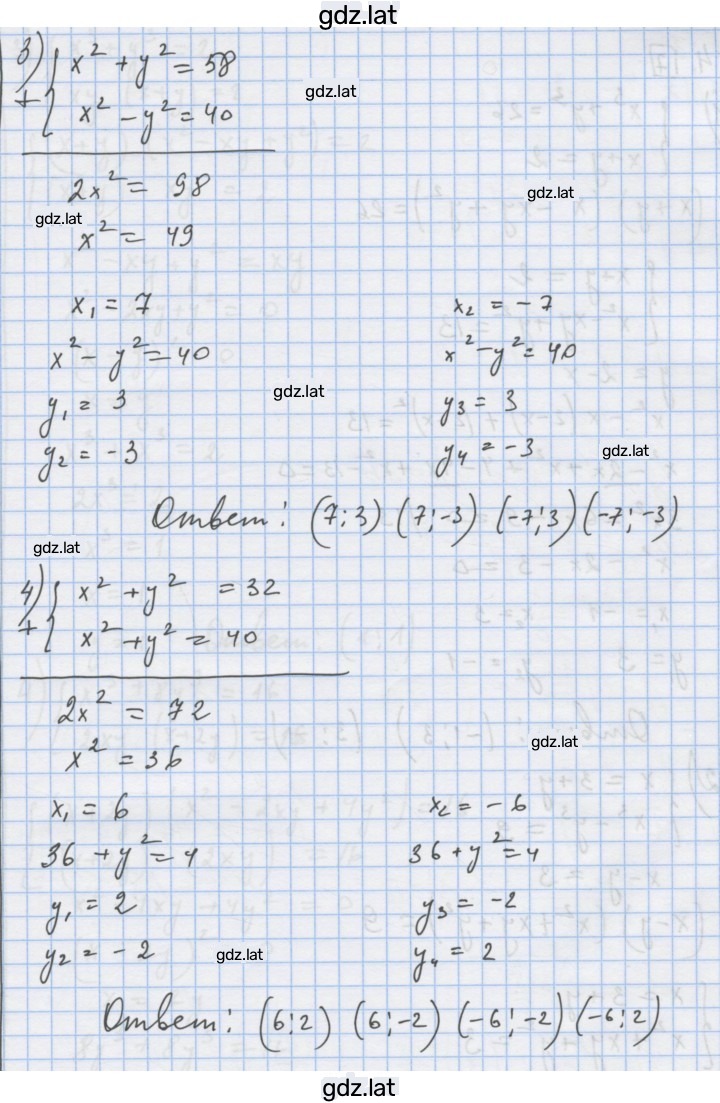 gdz.lat
3) { x² + y² = 58
gdz.lat
+ { x² - y² = 40
2x² = 98
gdz.lat
gdz.lat
x² = 49
x₁ = 7 x₂ = -7
x² - y² = 40 x² - y² = 40
gdz.lat
y₁ = 3 y₃ = 3
y₂ = -3 y₄ = -3
gdz.lat
Ответ: (7;3) (7;-3) (-7;3) (-7;-3)
gdz.lat
4) { x² + y² = 32
+ { x² + y² = 40
2x² = 72
x² = 36
gdz.lat
x₁ = 6 x₂ = -6
36 + y² = 4 36 + y² = 4
y₁ = 2 y₃ = -2
y₂ = -2 y₄ = 2
gdz.lat
Ответ: (6;2) (6;-2) (-6;-2) (-6;2)
gdz.lat